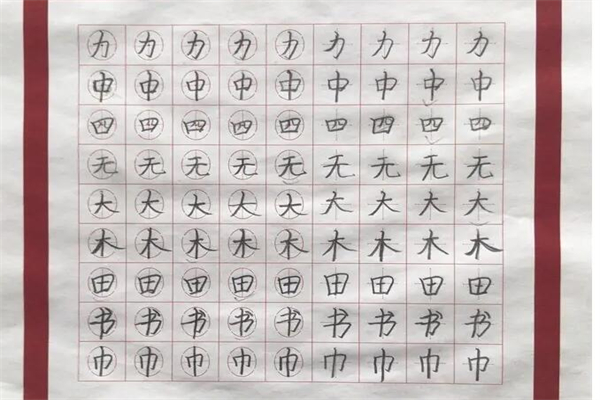 力 力 力 力 力 力 力 力 力
中 中 中 中 中 中 中 中 中
四 四 四 四 四 四 四 四 四
无 无 无 无 无 无 无 无 无
大 大 大 大 大 大 大 大 大
木 木 木 木 木 木 木 木 木
田 田 田 田 田 田 田 田 田
书 书 书 书 书 书 书 书 书
巾 巾 巾 巾 巾 巾 巾 巾 巾